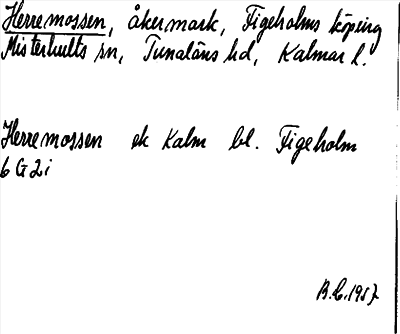 Herremossen, åkermark, Figeholms köping
Misterhults sn, Tunaläns hd, Kalmar l.
Herremossen ek Kalm bl. Figeholm
6 G 2 i
B.L. 1957